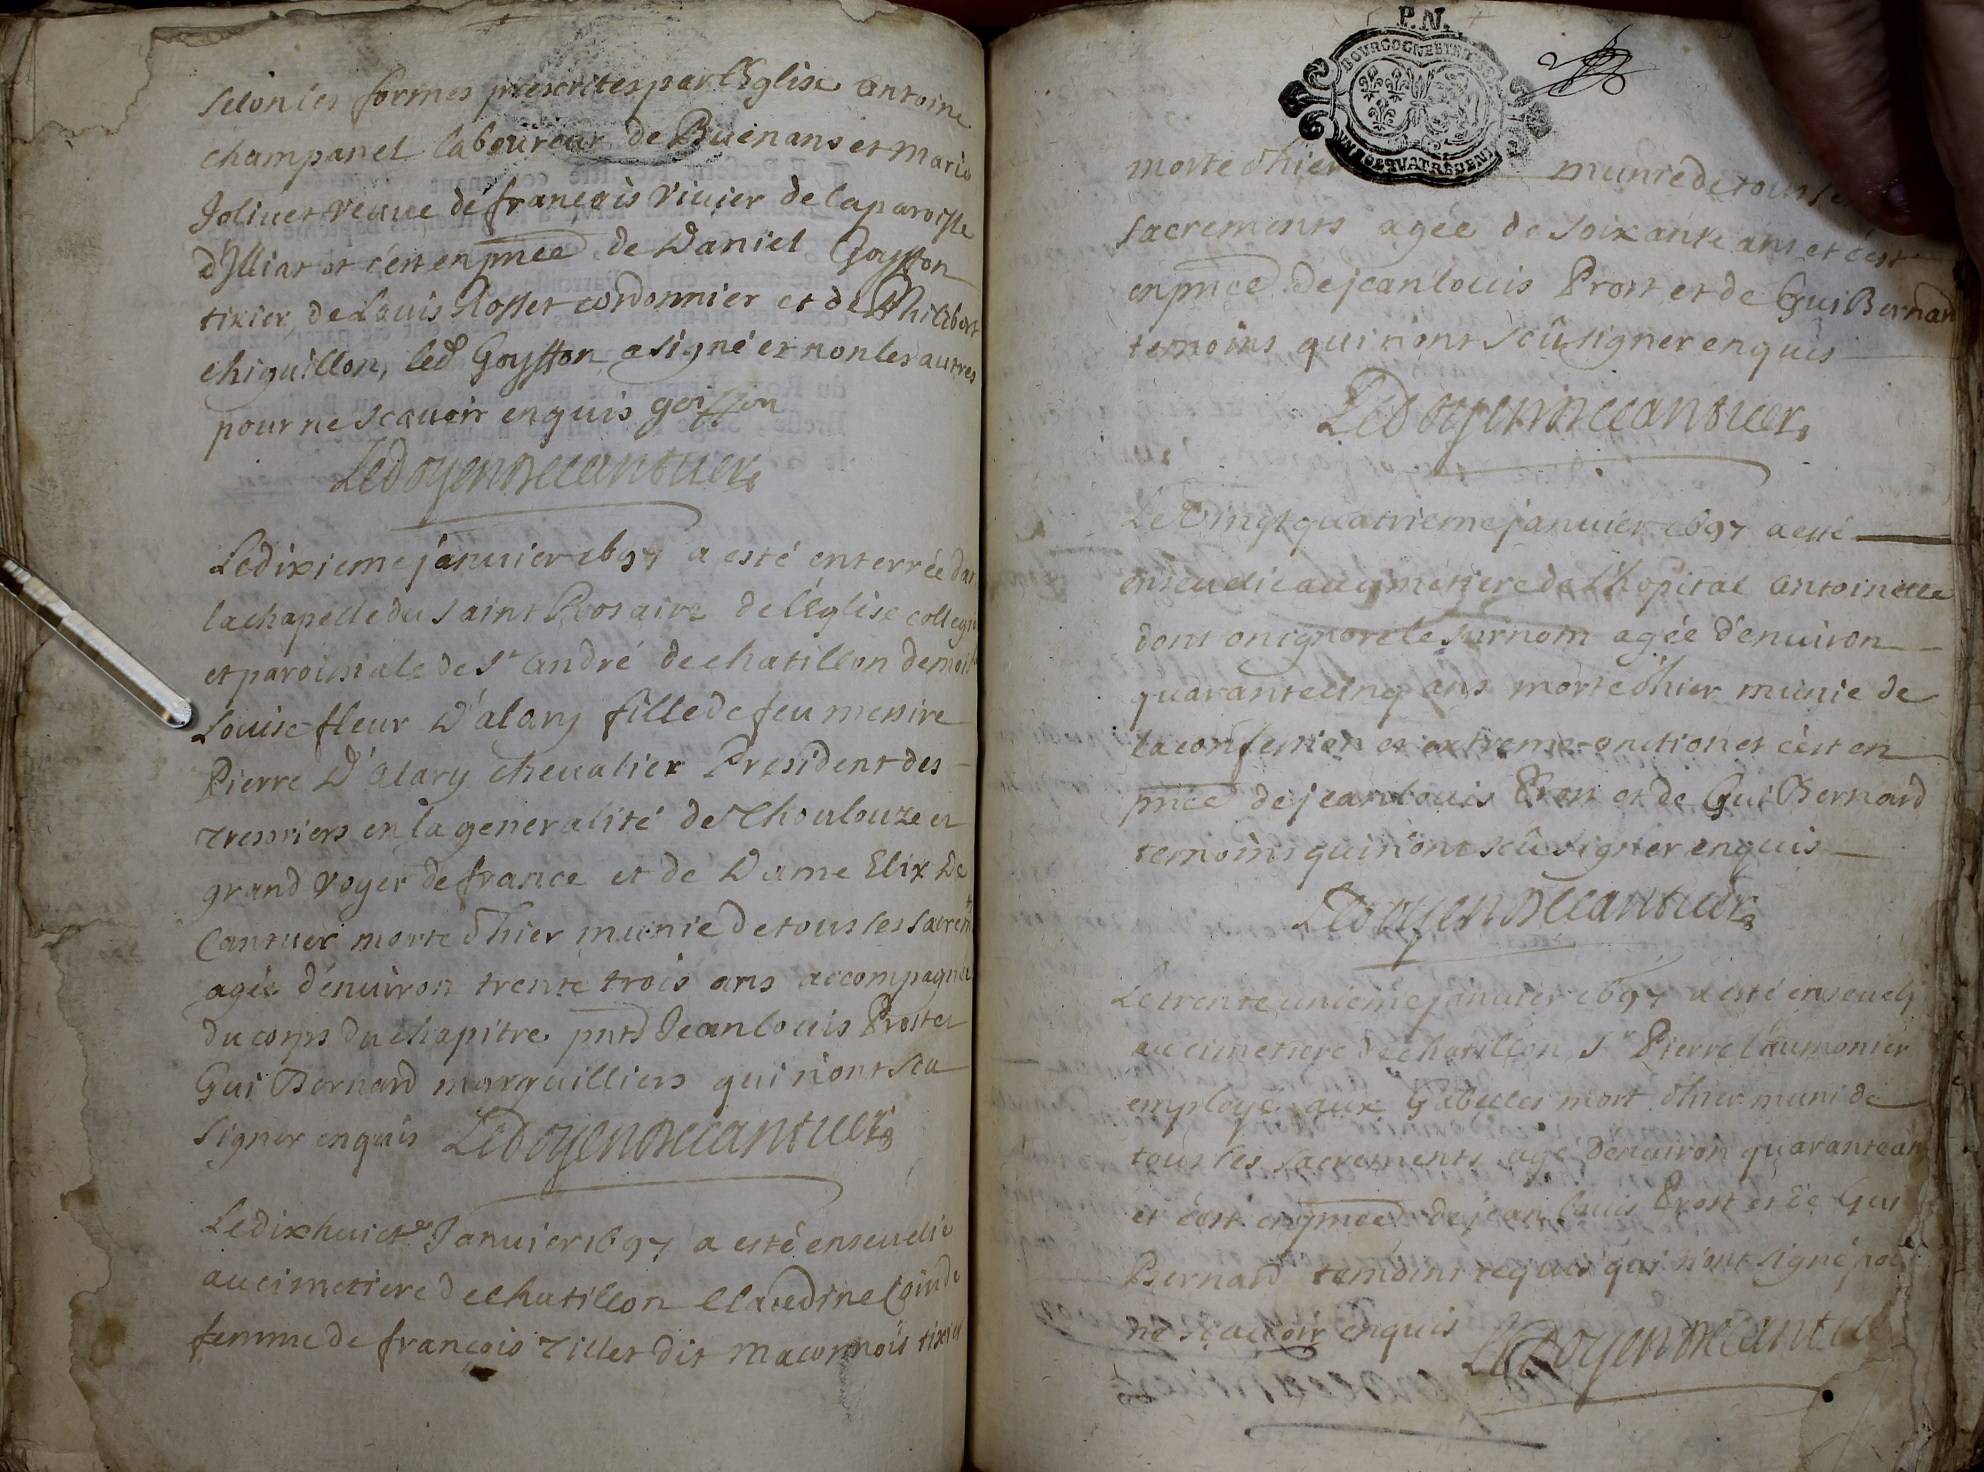 selon les formes prescrites par l'Eglise antoine
champanel laboureur de Buenans et marie
Joliuet veuue de françois viuier de la paroisse
d'Illiat et c'est en pnce de Daniel Goyffon
tixier, de Louis Rosset cordonnier et de Philibert
chiguillon, led Goyffon a signé et non les autres
pour ne scauoir enquis goiffon
Le doyen De cantuer
Le dixieme januier 1697 a esté enterrée dans
la chapelle du saint Rosaire de l'Eglise collegi
et paroissiale de St André de chatillon demois
Louise fleur D'alary fille de feu messire
Pierre D'alary cheualier President des
tresoriers en la generalité de Thoulouze et
grand voyer de france et de Dame Elix De
Cantuer morte d'hier munie de tous les sacremt
agée d'enuiron trente trois ans accompagnée
du corps du chapitre pnts Jean louis Prost et
Gui Bernard marguilliers qui n'ont sceu
signer enquis Le doyen De cantuer
Le dix huicte Januier 1697 a esté enseuelie
au cimetiere de chatillon Claudine
femme de françois Tillet dit maconnois tixier
P.N.
BOURGOGNE BRESSE
VN S QVATRE DENI
morte d'hier munie de tous se
sacrements agée de soixante ans et c'est
en pnce de jean louis Prost et de Gui Bernard
temoins qui n'ont sceû signer enquis
Le doyen De cantuer
Le Vingt quatrieme januier 1697 a esté
enseuelie au cimetiere de l'hopital antoinette
dont on ignore le surnom agée d'enuiron
quarante cinq ans morte d'hier munie de
la confession et extreme onction et c'est en
pnce de jean louis Prost et de Gui Bernard
temoins qui n'ont sceû signer enquis
Le doyen De cantuer
Le trente unieme januier 1697 a esté enseueli
au cimetiere de chatillon, Sr Pierre l'aumonier
employé aux Gabelles mort d'hier muni de
tous les sacrements agé d'enuiron quarante an
et c'est en pnce de jean louis Prost et de Gui
Bernard temoins requis qui n'ont signé pour
ne scauoir enquis Le doyen De cantuer